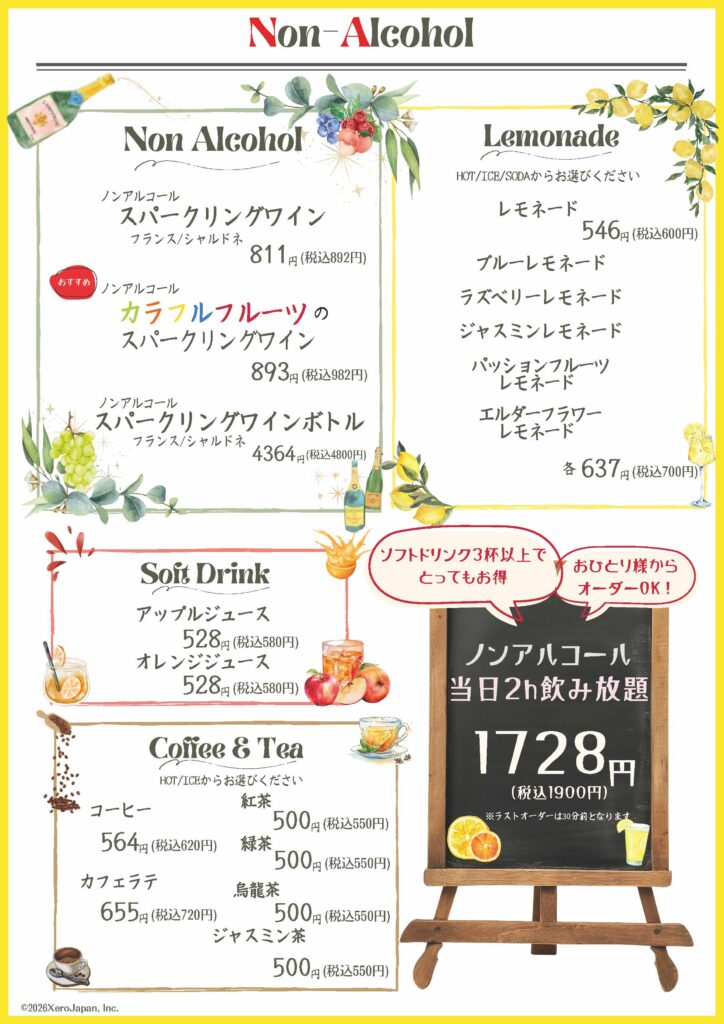 Non-Alcohol
Non Alcohol
ノンアルコール
スパークリングワイン
フランス/シャルドネ
811円(税込892円)
おすすめ
ノンアルコール
カラフルフルーツの
スパークリングワイン
893円(税込982円)
ノンアルコール
スパークリングワインボトル
フランス/シャルドネ
4364円(税込4800円)
Lemonade
HOT/ICE/SODAからお選びください
レモネード
546円(税込600円)
ブルーレモネード
ラズベリーレモネード
ジャスミンレモネード
パッションフルーツ
レモネード
エルダーフラワー
レモネード
各 637円(税込700円)
Soft Drink
アップルジュース
528円(税込580円)
オレンジジュース
528円(税込580円)
ソフトドリンク3杯以上で
とってもお得
おひとり様から
オーダーOK！
ノンアルコール
当日2h飲み放題
1728円
(税込1900円)
※ラストオーダーは30分前となります
Coffee & Tea
HOT/ICEからお選びください
コーヒー
564円(税込620円)
カフェラテ
655円(税込720円)
紅茶
500円(税込550円)
緑茶
500円(税込550円)
烏龍茶
500円(税込550円)
ジャスミン茶
500円(税込550円)
©2026XeroJapan, Inc.